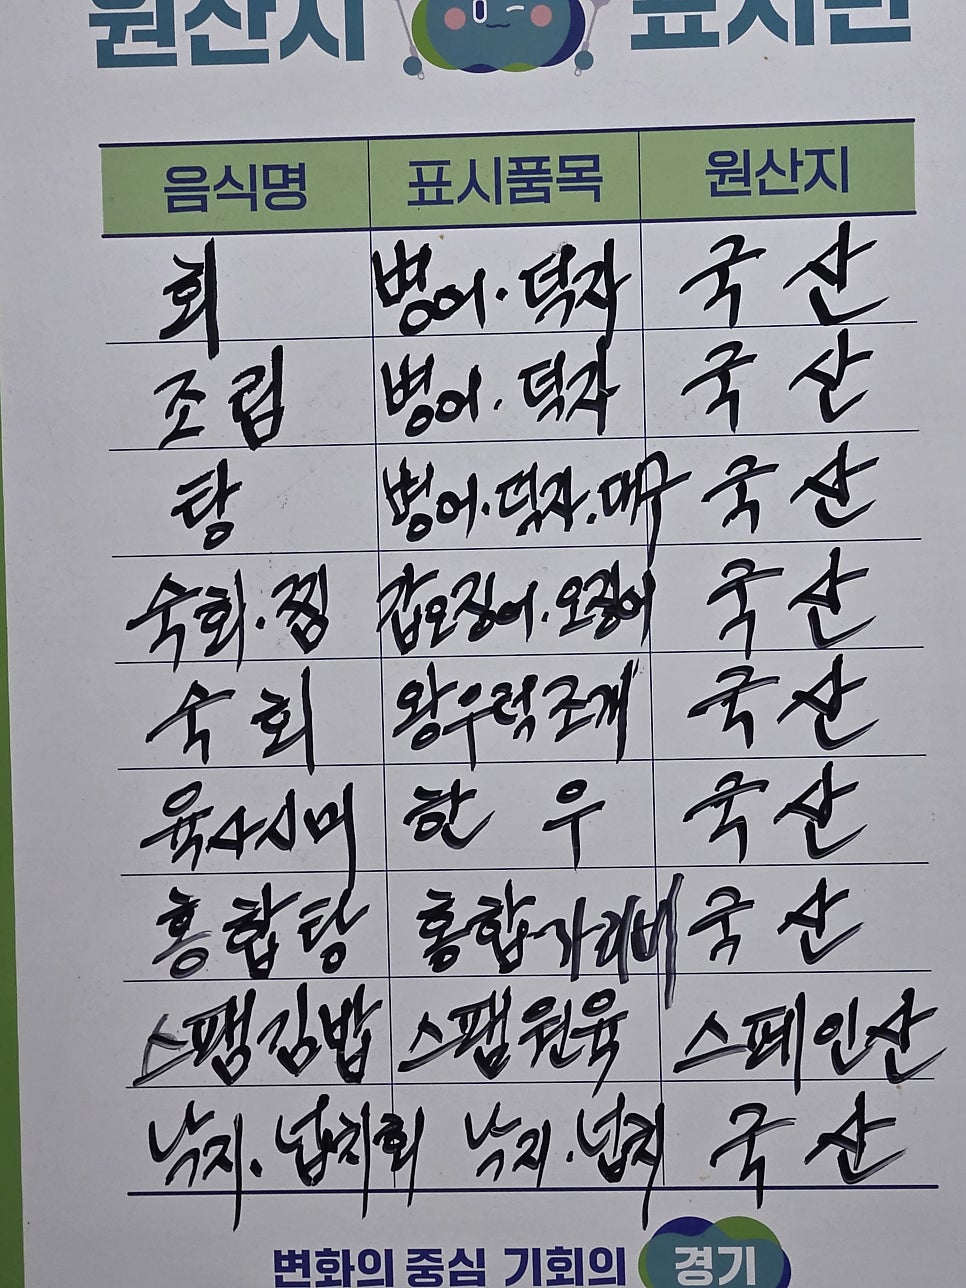 원산지 표시판
음식명 표시품목 원산지
회 병어·덕자 국산
조림 병어·덕자 국산
탕 병어·덕자·대구 국산
숙회·찜 갑오징어·오징어 국산
숙회 왕우럭조개 국산
육사시미 한우 국산
홍합탕 홍합·가리비 국산
스팸김밥 스팸원육 스페인산
낙지·넙치회 낙지·넙치 국산
변화의 중심 기회의 경기